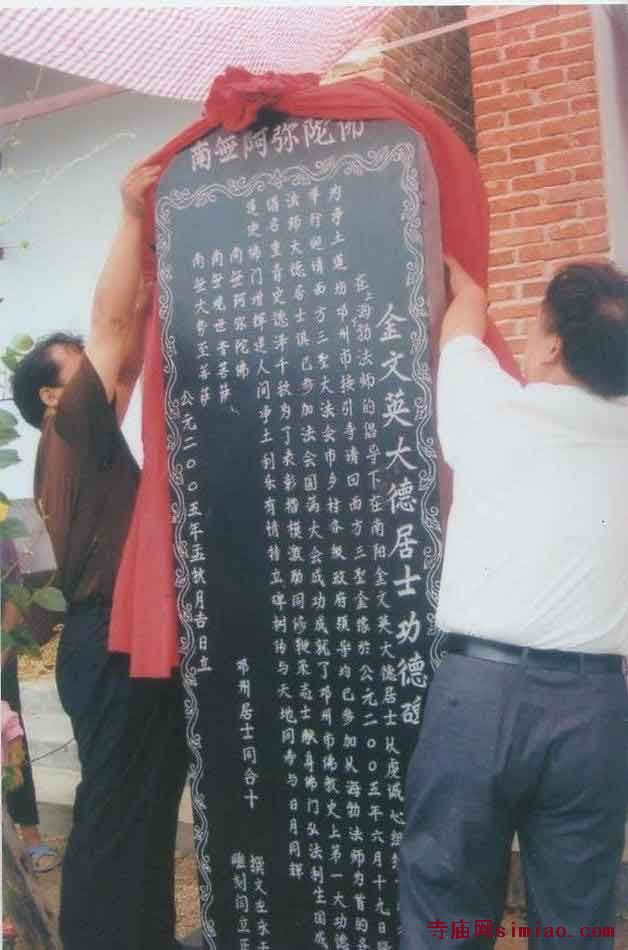 南無阿弥陀佛
金文英大德居士功德碑
在海勃法师的倡导下在南阳金文英大德居士从虔诚心组
为净土道场邓州市接引寺请回西方三圣金像於公元二00五年六月十九日隆
举行迎请西方三圣大法会市乡村各级政府领导均已参加从海勃法师为首的各
法师大德居士俱已参加法会圆满大会成功成就了邓州市佛教史上第一大功德
名重青史德泽千秋为了表彰楷模激励同修鞭策志士献身佛门弘法利生国
使佛门增辉道人间净土利乐有情特立碑树传与天地同寿与日月同辉
南無阿弥陀佛
南無观世音菩萨
南無大势至菩萨
邓州居士同合十
公元二00五年孟秋月吉日立
撰文左永
雕刻闫立正
寺庙网simiao.com